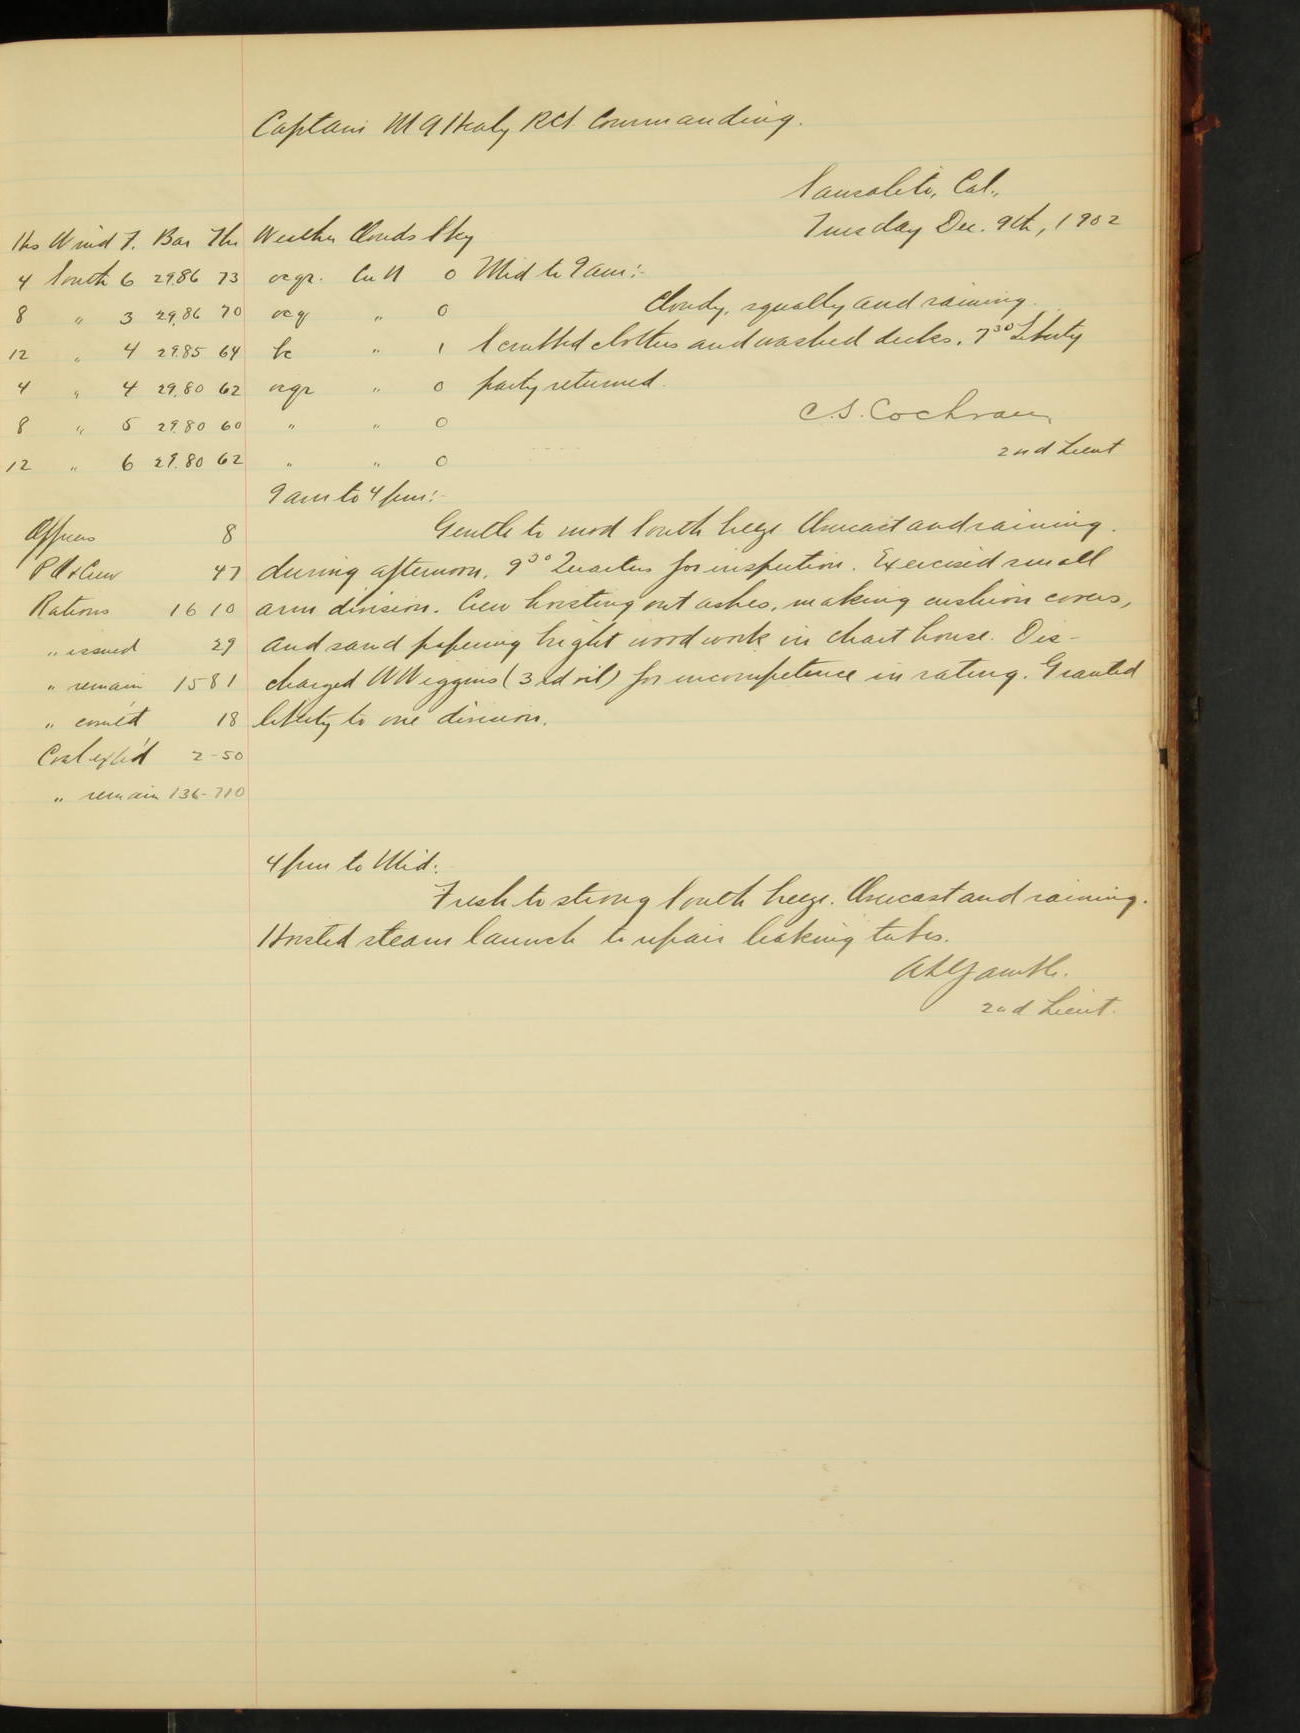 Captain M A Healy RCS Commanding.
Sausalito, Cal.,
Tuesday Dec. 9th, 1902
Hrs Wind F. Bar Thr Weather Clouds Sky
4 South 6 29.86 73 ocqr. Cu N 0 Mid to 9 am:-
8 " 3 29.86 70 ocq " 0 Cloudy, squally and raining.
12 " 4 29.85 64 bc " 1 Scrubbed clothes and washed decks. 7 30 Liberty
4 " 4 29.80 62 ocqr " 0 party returned.
8 " 5 29.80 60 " " 0 C.S. Cochran
12 " 6 29.80 62 " " 0 2nd Lieut
9 am to 4 pm:-
Officers 8 Gentle to mod South breeze Overcast and raining
P O & Crew 47 during afternoon. 9 30 Quarters for inspection. Exercised small
Rations 1610 arm division. Crew hoisting out ashes, making cushion covers,
" issued 29 and sand papering bright wood work in chart house. Dis-
" remain 1581 charged W Wiggins (3rd oil) for incompetence in rating. Granted
" com'd 18 liberty to one division.
Coal exp'd 2-50
" remain 136-710
4 pm to Mid:
Fresh to strong South breeze. Overcast and raining.
Hoisted steam launch to repair leaking tubes.
A L Gamble.
2nd Lieut.